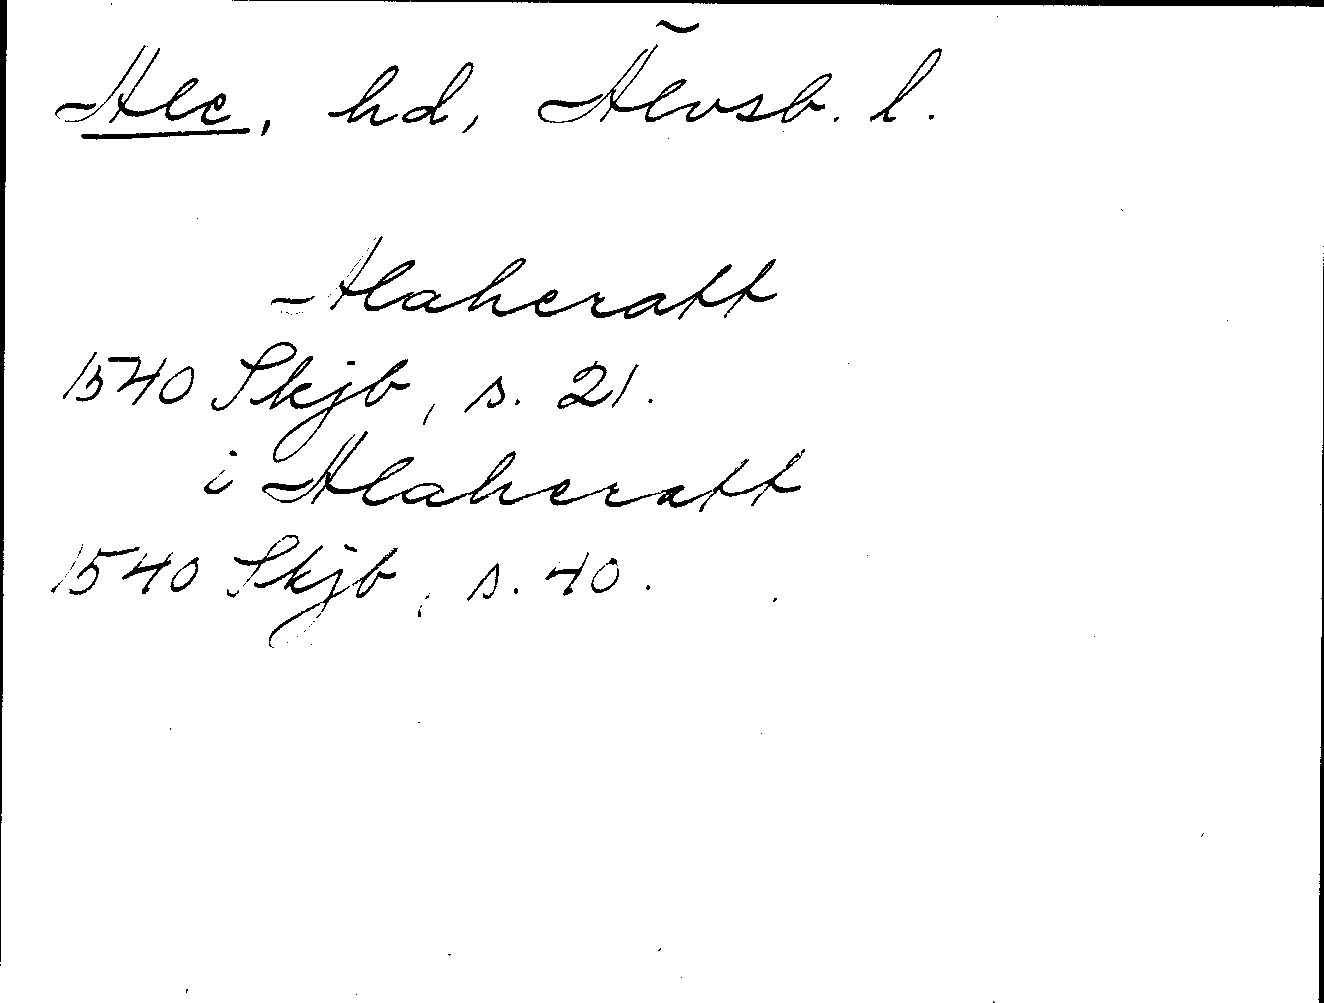 Ale, hd, Älvsb. l.
Alaheratt
1540 Skjb, s. 21.
i Alaheratt
1540 Skjb, s. 40.